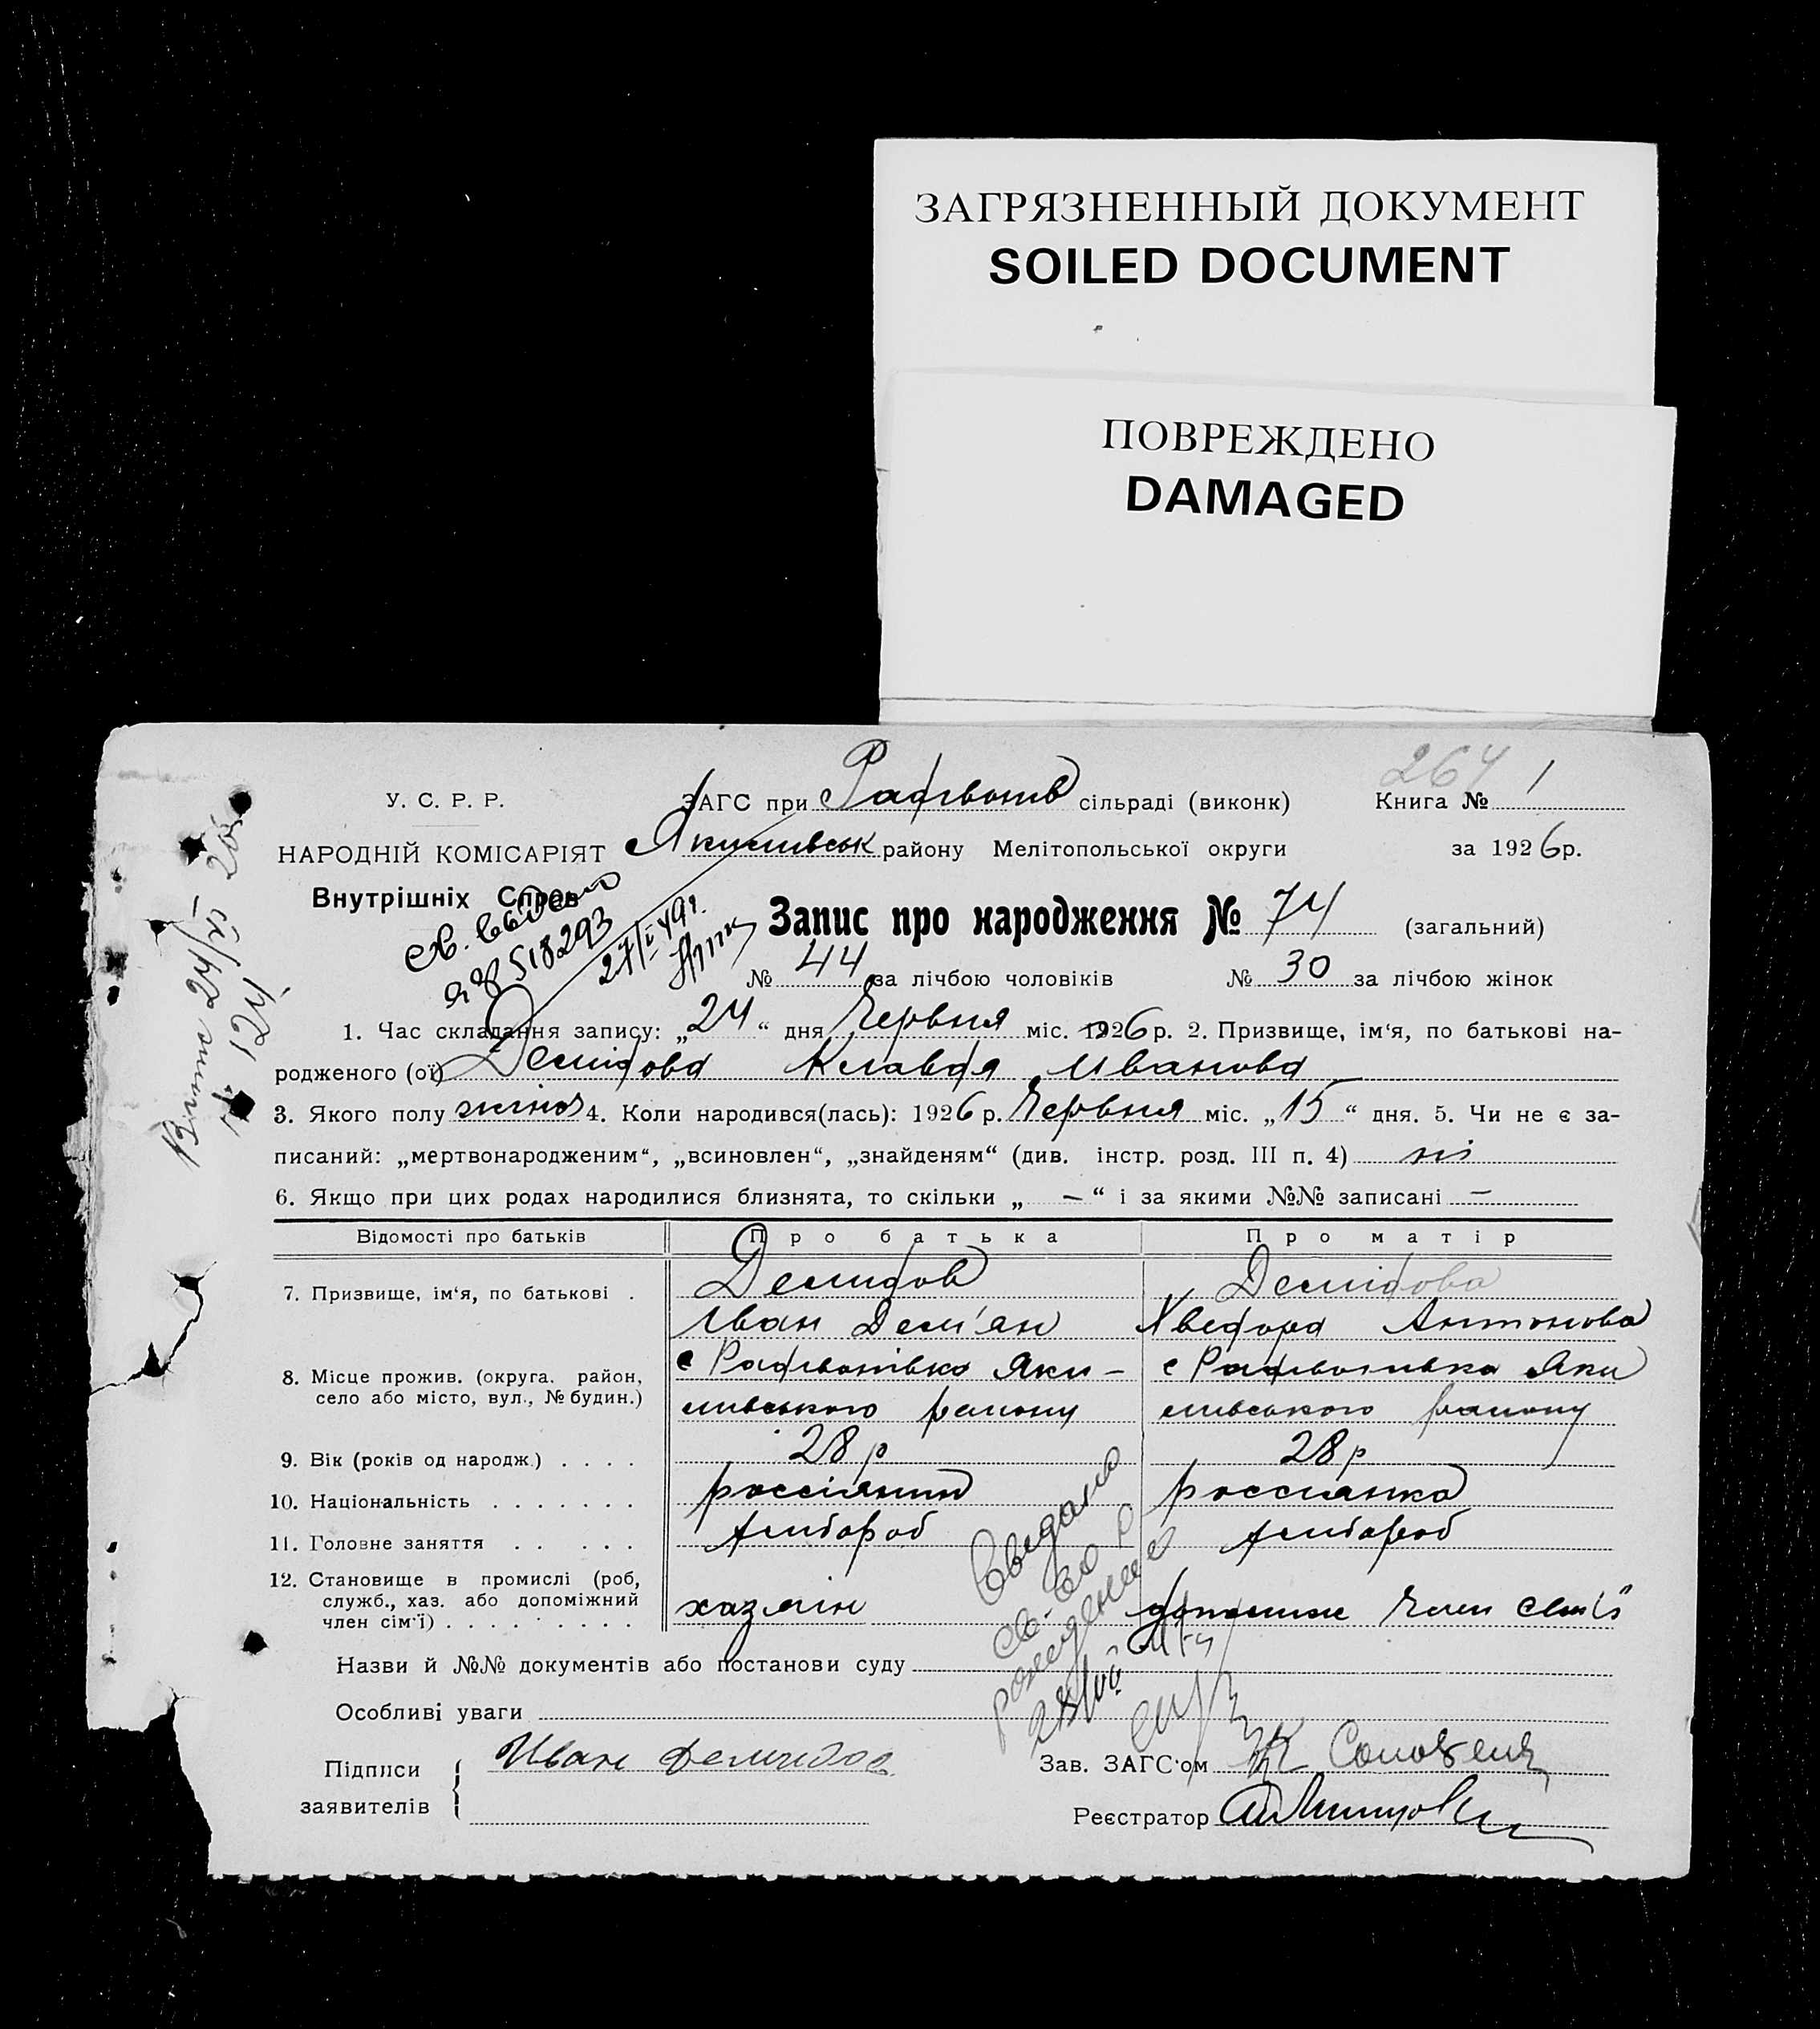 ЗАГРЯЗНЕННЫЙ ДОКУМЕНТ
SOILED DOCUMENT
ПОВРЕЖДЕНО
DAMAGED
264
У. С. Р. Р. ЗАГС при сільраді (виконк) Книга № 1
НАРОДНІЙ КОМІСАРІЯТ району Мелітопольської округи за 1926 р.
Внутрішніх Справ
518293
Запис про народження № 74 (загальний)
№ 44 за лічбою чоловіків № 30 за лічбою жінок
1. Час складання запису: „24“ дня Червня міс. 1926 р. 2. Призвище, ім‘я, по батькові на-
родженого (ої) Демідова Клавдя Иванова
3. Якого полу жіноч 4. Коли народився(лась): 1926 р. Червня міс. „15“ дня. 5. Чи не є за-
писаний: „мертвонародженим“, „всиновлен“, „знайденям“ (див. інстр. розд. III п. 4) ні
6. Якщо при цих родах народилися близнята, то скільки „ — “ і за якими №№ записані —
Відомості про батьків Про батька Про матір
7. Призвище, ім‘я, по батькові . Демидов Демідова
Іван Дем'ян Хведора Антонова
8. Місце прожив. (округа, район, с Яки- с Яки
село або місто, вул., № будин.) мивського району мивського району
9. Вік (років од народж.) . . . . 28 р 28 р
10. Національність . . . . . . . россіянин россианка
11. Головне заняття . . . . . хлібороб хлібороб
12. Становище в промислі (роб,
служб., хаз. або допоміжний хазяін член сем'ї
член сім‘ї) . . . . . . . . .
Выдано
св-во о
рождении
Назви й №№ документів або постанови суду
Особливі уваги
Підписи Иван Демидов Зав. ЗАГС‘ом
заявителів Реєстратор